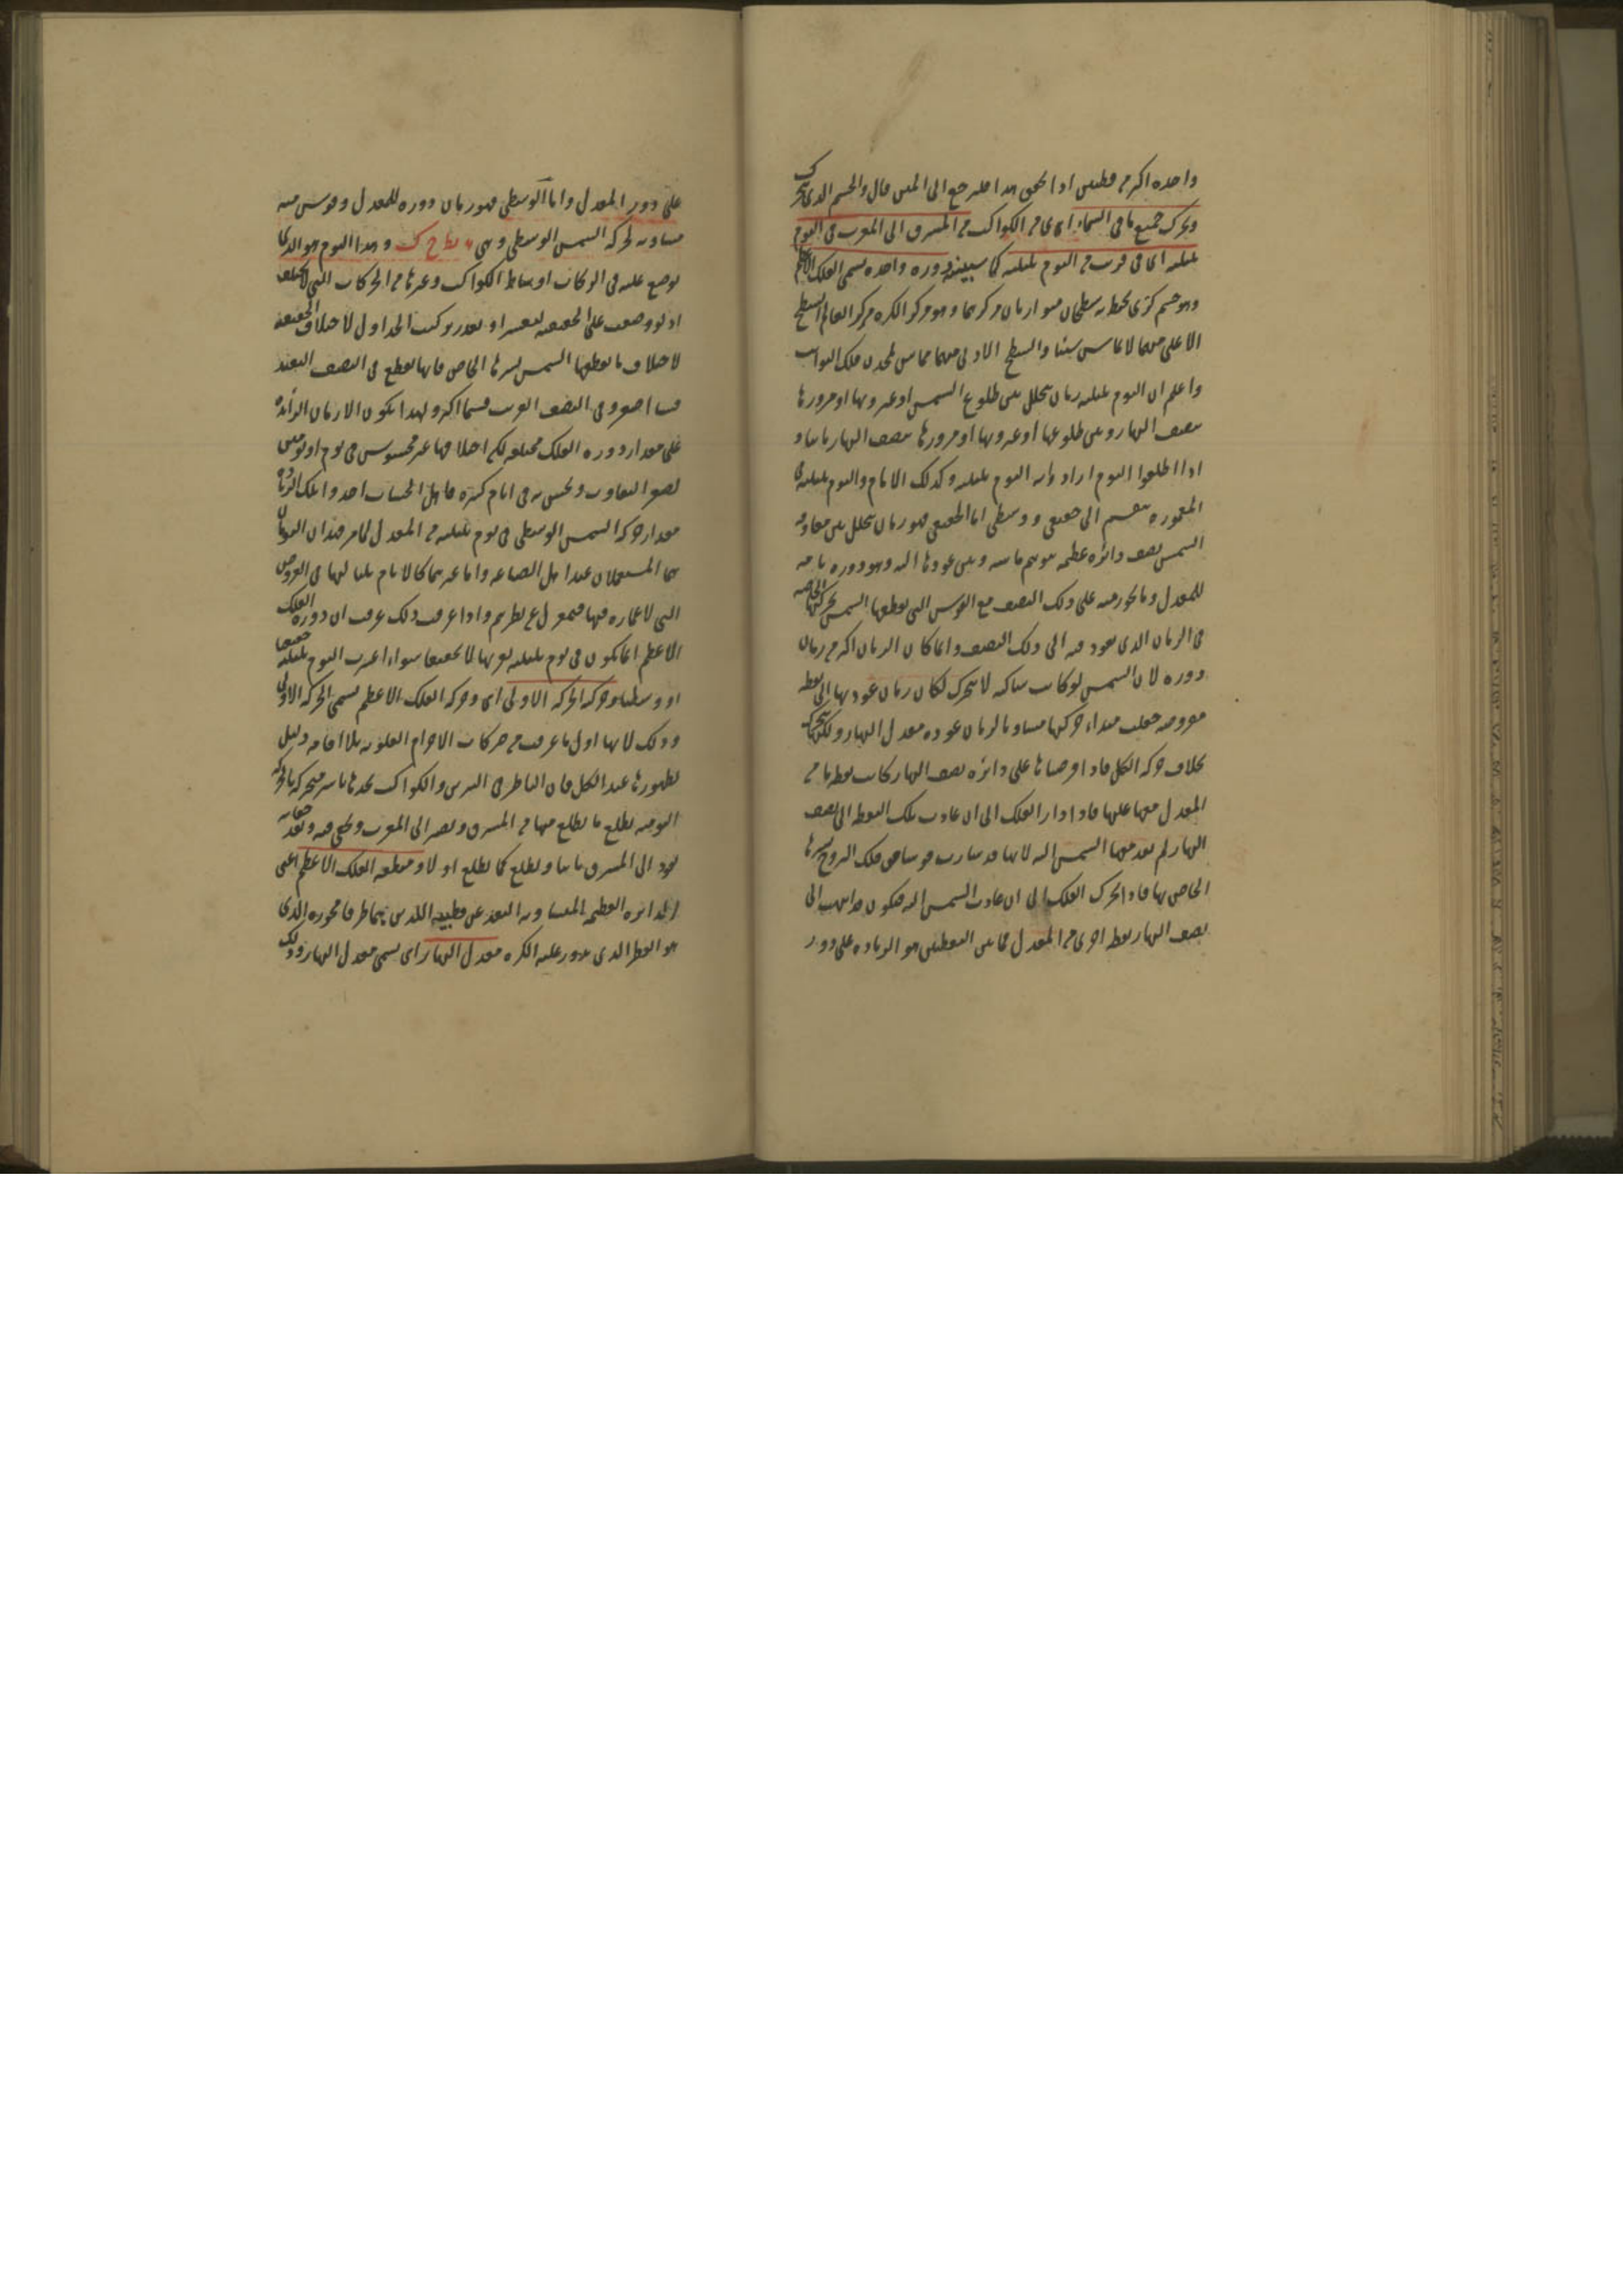 واحده اكثر من قطبين اذا تحقق هذا فلنرجع الى المتن قال والجسم الذى يتحرك
ويحرك جميع ما فى السماء اى من الكواكب من المشرق الى المغرب فى اليوم
بليلته اى فى قريب من اليوم بليلته كما سنبينه دورة واحده يسمى الفلك الاعظم
وهو جسم كرى يحيط به سطحان متوازيان مركزهما وهو مركز الكره مركز العالم السطح
الاعلى منهما لا يماس شيئا والسطح الادنى منهما مماس لمحدب فلك الثوابت
واعلم ان اليوم بليلته زمان يتخلل بين طلوع الشمس او غروبها او مرورها
بنصف النهار وبين طلوعها او غروبها او مرورها بنصف النهار ثانيا و
اذا اطلقوا اليوم ارادوا به اليوم بليلته وكذلك الايام واليوم بليلته فى
المعموره ينقسم الى حقيقى ووسطى اما الحقيقى فهو زمان يتخلل بين مفارقة
الشمس نصف دائره عظيمه يتوهم ثابته وبين عودها اليه وهو دوره تامه
للمعدل وما يجوز منه على ذلك النصف مع القوس التى يقطعها الشمس بحركتها الخاصه
فى الزمان الذى يعود فيه الى ذلك النصف وانما كان الزمان اكثر من زمان
دوره لان الشمس لو كانت ساكنه لا تتحرك لكان زمان عودها الى نقطه
مفروضه جعلت مبداء حركتها مساويا لزمان عوده معدل النهار ولكنها تتحرك
بخلاف حركه الكل فاذا فرضناها على دائره نصف النهار كانت نقطه ما من
المعدل معها عليها فاذا دار الفلك الى ان عادت تلك النقطه الى نصف
النهار لم تعد معها الشمس اليه لانها قد سارت قوسا من فلك البروج بسيرها
الخاص بها فاذا تحرك الفلك الى ان عادت الشمس اليه فيكون قد انتهت الى
نصف النهار نقطه اخرى من المعدل فما بين النقطتين هو الزياده على دور
على دور المعدل واما الوسطى فهو زمان دوره للمعدل وقوس منه
مساويه لحركه الشمس الوسطى وهى نط ح ك وهذا اليوم هو الذى
يوضع عليه فى الزيجات اوساط الكواكب وغيرها من الحركات التى لا تختلف
اذ لو وضعت على الحقيقيه لتعسر او تعذر تركيب الجداول لاختلاف الحقيقيه
لاختلاف ما يقطعها الشمس بسيرها الخاص فانها تقطع فى النصف البعيد
قسيا اصغر وفى النصف القريب قسيا اكبر ولهذا يكون الازمان الزائده
على مقدار دوره الفلك مختلفه لكن اختلافها غير محسوس فى يوم او يومين
لصغر التفاوت ويحس به فى ايام كثيره فاهل الحساب اخذوا تلك الزياده
مقدار حركه الشمس الوسطى فى يوم بليلته من المعدل لما مر فهذان اليومان
هما المستعملان عند اهل الصناعه واما غيرهما كالايام بلياليها فى العروض
التى لا عماره فيها فبمعزل عن نظرهم واذا عرفت ذلك عرفت ان دوره الفلك
الاعظم انما يكون فى يوم بليلته تقريبا لا تحقيقا سواء اعتبرت اليوم بليلته حقيقيا
او وسطيا وحركته الحركه الاولى اى وحركه الفلك الاعظم يسمى الحركه الاولى
وذلك لانها اول ما عرفت من حركات الاجرام العلويه بلا اقامه دليل
لظهورها عند الكل فان الناظر فى النيرين والكواكب يجدها باسرها متحركه بالحركه
اليوميه يطلع ما يطلع منها من المشرق ويصير الى المغرب ويختفى فيه وبعد خفائه
يعود الى المشرق ثانيا ويطلع كما يطلع اولا ومنطقه الفلك الاعظم اعنى
الدائره العظيمه المتساويه البعد عن قطبيه اللذين هما طرفا محوره الذى
هو القطر الذى يدور عليه الكره معدل النهار اى يسمى معدل النهار وذلك